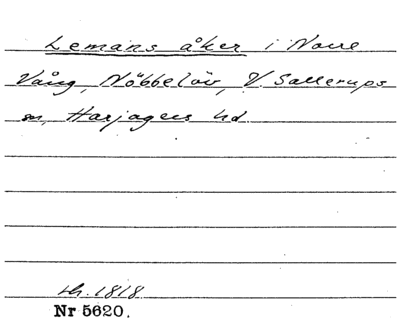 Lemans åker i Norre
Vång, Nöbbelöv, V. Sallerups
sn, Harjagers hd.
h. 1818
Nr 5620.